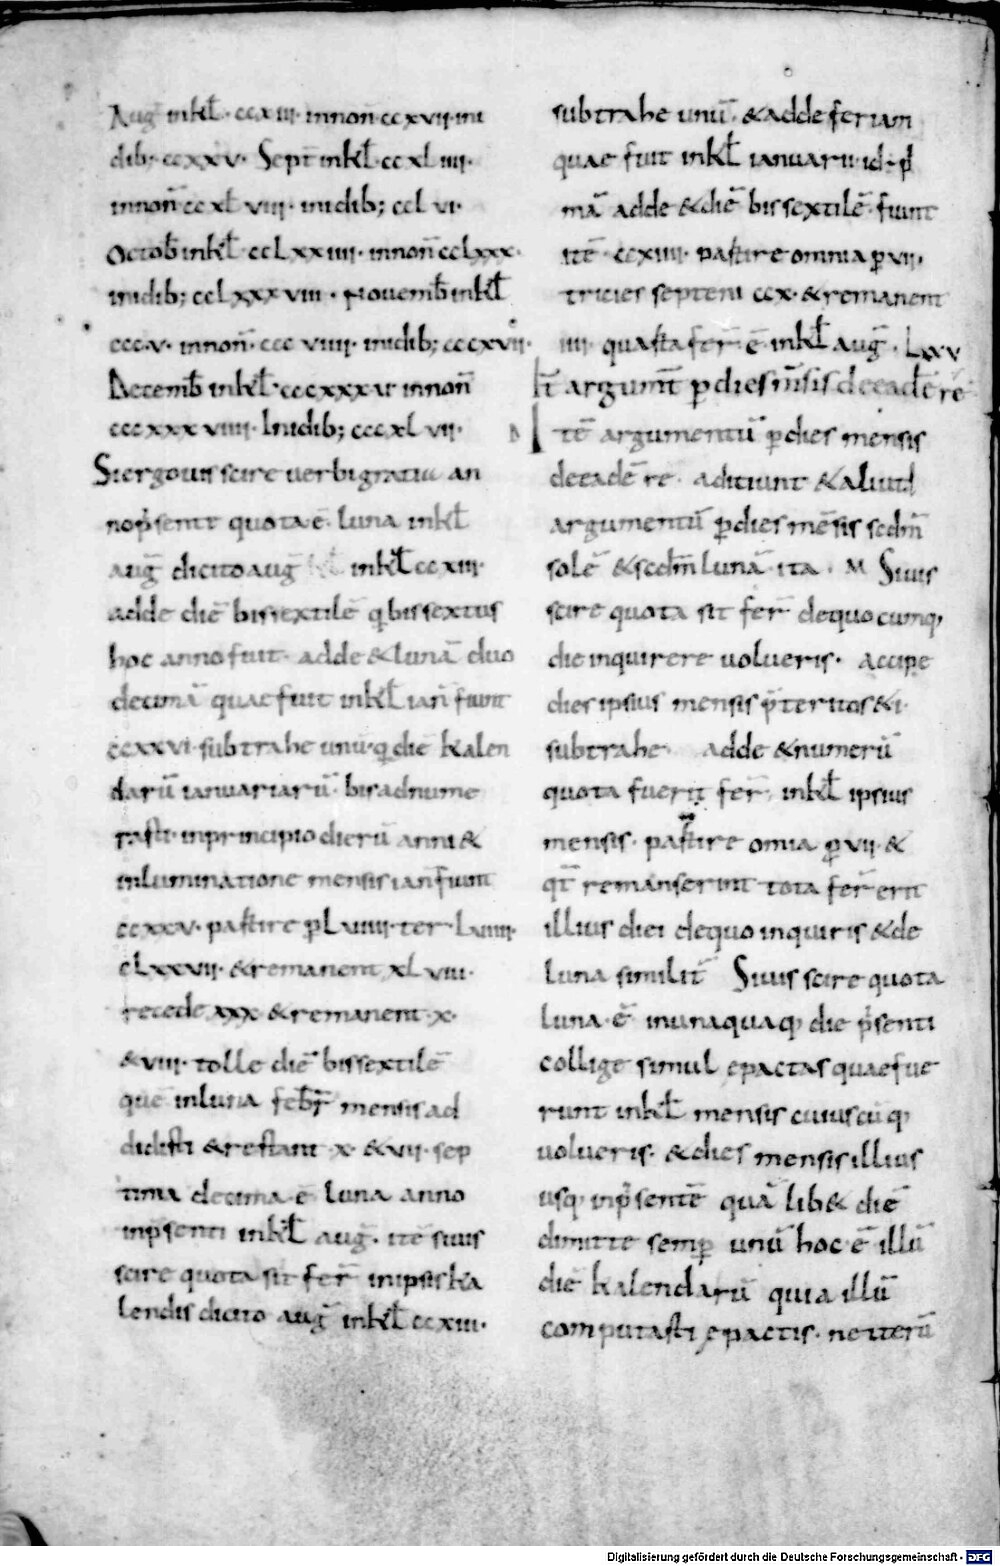 Aug̅ inkł· ccxiii· innon̅ ccxvii· ini
dib; ccxxv· Sept̅ inkł· ccxliiii·
innon̅ ccxlviii· inidib; cclvi·
Octob̅ inkł· cclxxiiii· innon̅ cclxxx·
inidib; cclxxxviii· Nouemb̅ inkł
cccv· innon̅· cccviiii· inidib; cccxvii·
Decemb̅ inkł· cccxxxv innon̅
cccxxxviiii· Inidib; cccxlvii·
Si ergo uis scire uerbi gratia an
no p̅senti quota e̅· luna inkł
aug̅ dicito aug̅ inkł ccxiii·
adde die̅ bissextile̅ q bissextus
hoc anno fuit· adde & luna̅ duo
decima̅ quae fuit inkł ian̅ fiunt
ccxxvi· subtrahe unu̅· q die̅ kalen
daru̅ ianuariaru̅· bis adnume
rasti· in principio dieru̅ anni &
in luminatione mensis ian̅ fiunt
ccxxv· partire p lviiii· ter· lviiii·
clxxvii· & remanent xlviii·
recede xxx & remanent· x·
& viii· tolle die̅ bissextile̅
que̅ in luna feb̅r mensis ad
didisti & restant· x· & vii· sep
tima decima· e̅ luna anno
in p̅senti inkł aug̅· ite̅ si uis
scire quota sit fer̅ in ipsis ka
lendis dicito aug̅ inkł ccxiii·
subtrahe unu̅· & adde feriam
quae fuit inkł ianuarii· id· p
ma̅ adde & die̅ bissextile̅· fiunt
ite̅· ccxiiii· partire omnia p vii·
tricies septeni ccx· & remanent
iiii· quarta fer̅· e̅· inkł aug̅· Lxxv
It̅ argum̅t p dies m̅sis de eade̅ re
Ite̅ argumentu̅ p dies mensis
de eade̅ re· adiciunt & aliud
argumentu̅ p dies me̅sis sedm̅
sole̅ & scdm̅ luna̅· ita· M Si uis
scire quota sit fer̅ de quocumq;
die inquirere uolueris· Accipe
dies ipsius mensis p̅teritos & i·
subtrahe· adde & numeru̅
quota fuerit fer̅· inkł ipsius
mensis· partire omia p vii· &
qt̅ remanserint tota fer̅ erit
illius diei de quo inquiris & de
luna similit̅ Si uis scire quota
luna· e̅ in unaquaq; die p̅senti
collige simul epactas quae fue
runt inkł mensis cuiuscu̅q;
uolueris· & dies mensis illius
usq; in p̅sente̅ qua̅ lib& die̅
dimitte semp unu̅ hoc· e̅ illu̅
die̅ kalendaru̅ quia illu̅
computasti epactis· ne iteru̅